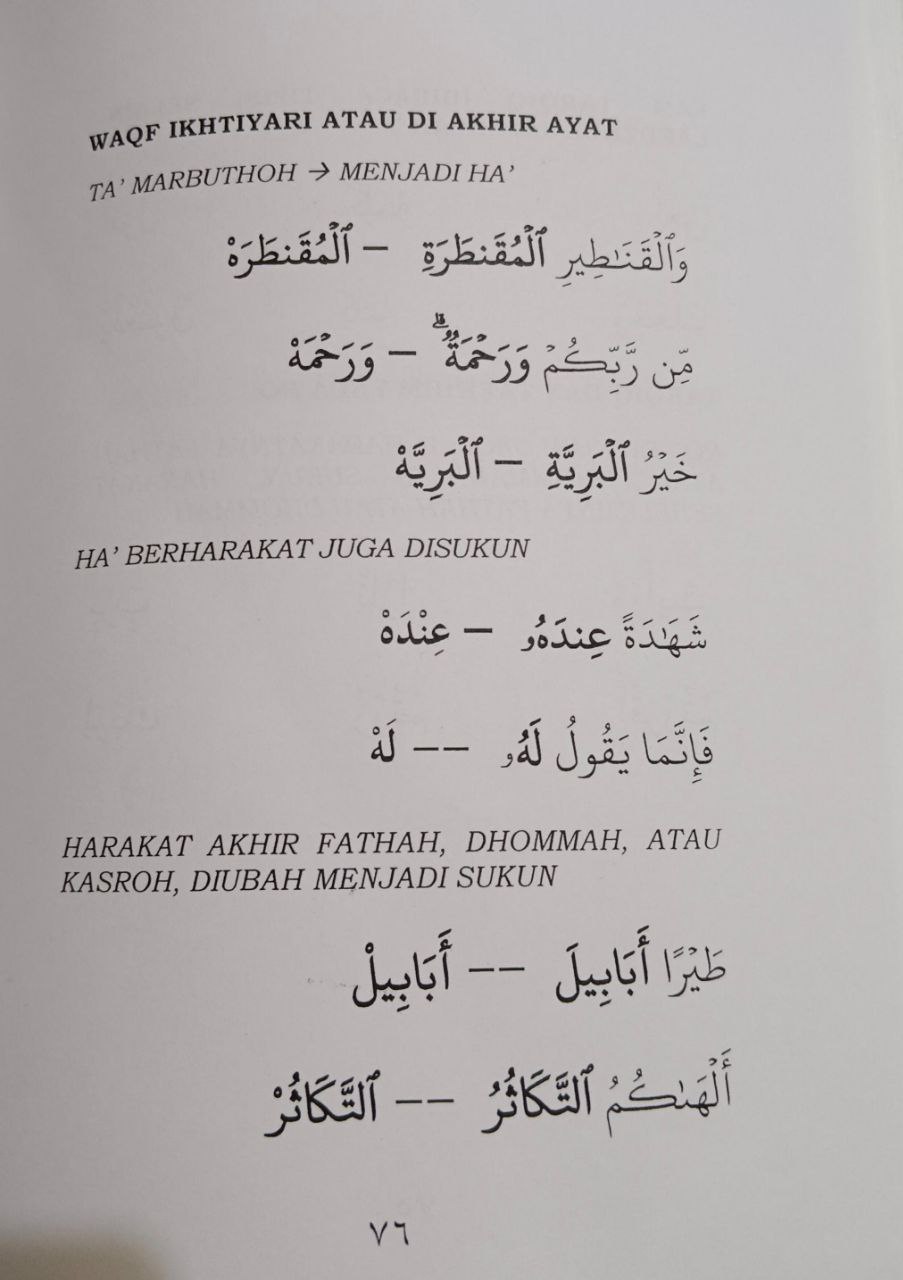 WAQF IKHTIYARI ATAU DI AKHIR AYAT
TA’ MARBUTHOH → MENJADI HA’
وَٱلْقَنَـٰطِيرِ ٱلْمُقَنطَرَةِ – ٱلْمُقَنطَرَهْ
مِّن رَّبِّكُمْ وَرَحْمَةٌ ۗ – وَرَحْمَهْ
خَيْرُ ٱلْبَرِيَّةِ – ٱلْبَرِيَّهْ
HA’ BERHARAKAT JUGA DISUKUN
شَهَـٰدَةً عِندَهُۥ – عِنْدَهْ
فَإِنَّمَا يَقُولُ لَهُۥ -- لَهْ
HARAKAT AKHIR FATHAH, DHOMMAH, ATAU
KASROH, DIUBAH MENJADI SUKUN
طَيْرًا أَبَابِيلَ -- أَبَابِيلْ
أَلْهَىٰكُمُ ٱلتَّكَاثُرُ -- ٱلتَّكَاثُرْ
٧٦